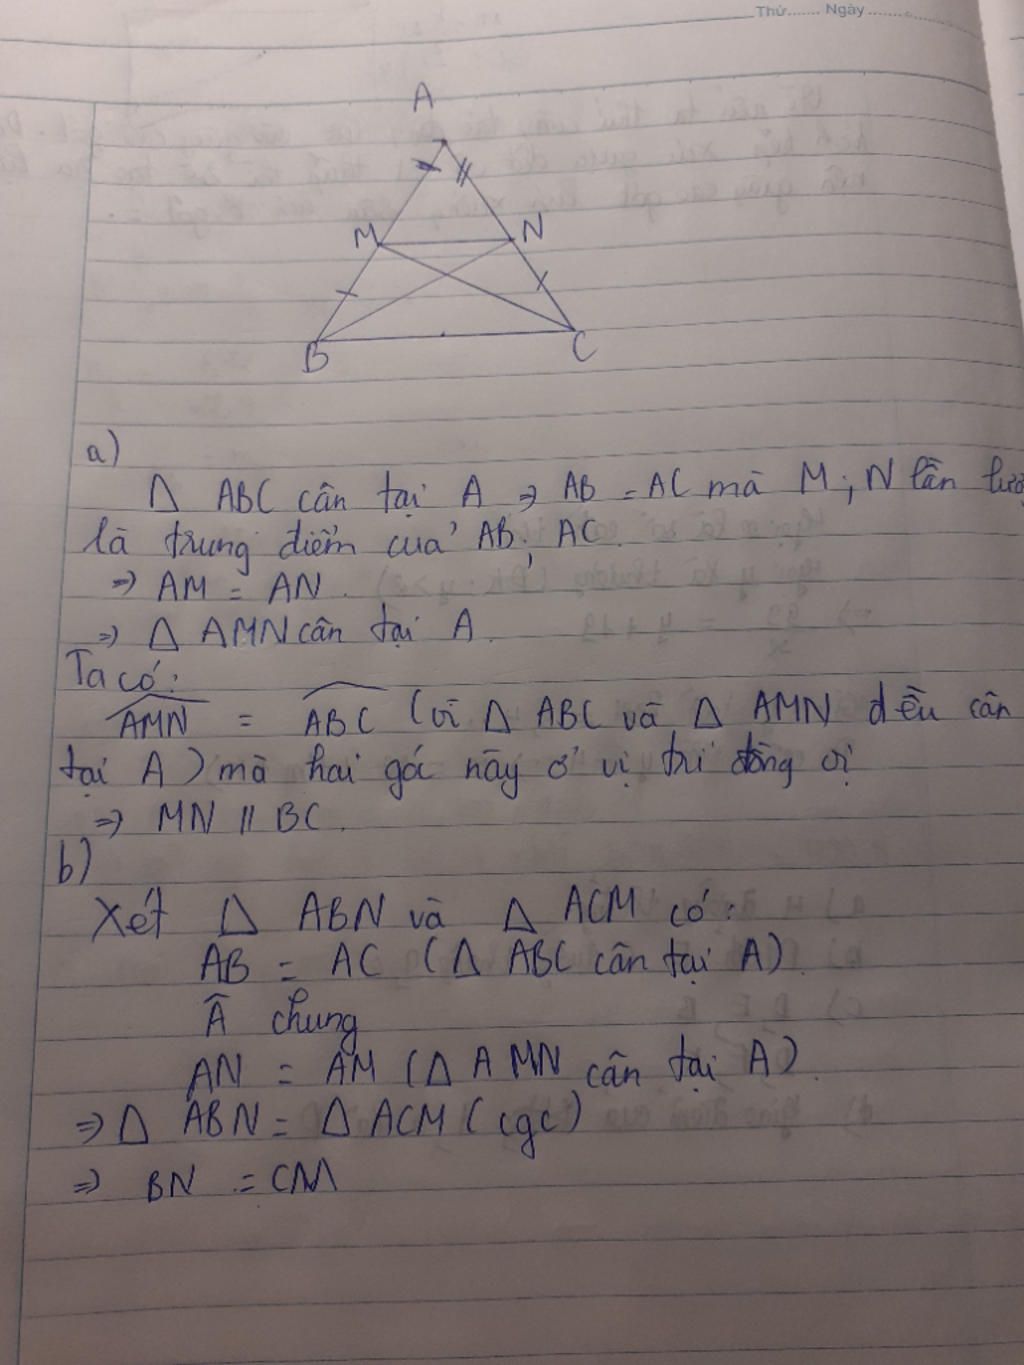 Thứ....... Ngày.........
A
M N
B C
a)
Δ ABC cân tại A => AB = AC mà M ; N lần lượ
là trung điểm của AB, AC.
=> AM = AN.
=> Δ AMN cân tại A.
Ta có:
AMN = ABC (vì Δ ABC và Δ AMN đều cân
tại A) mà hai góc này ở vị trí đồng vị
=> MN // BC.
b)
Xét Δ ABN và Δ ACM có:
AB = AC (Δ ABC cân tại A)
Â chung
AN = AM (Δ AMN cân tại A).
=> Δ ABN = Δ ACM (cgc)
=> BN = CM